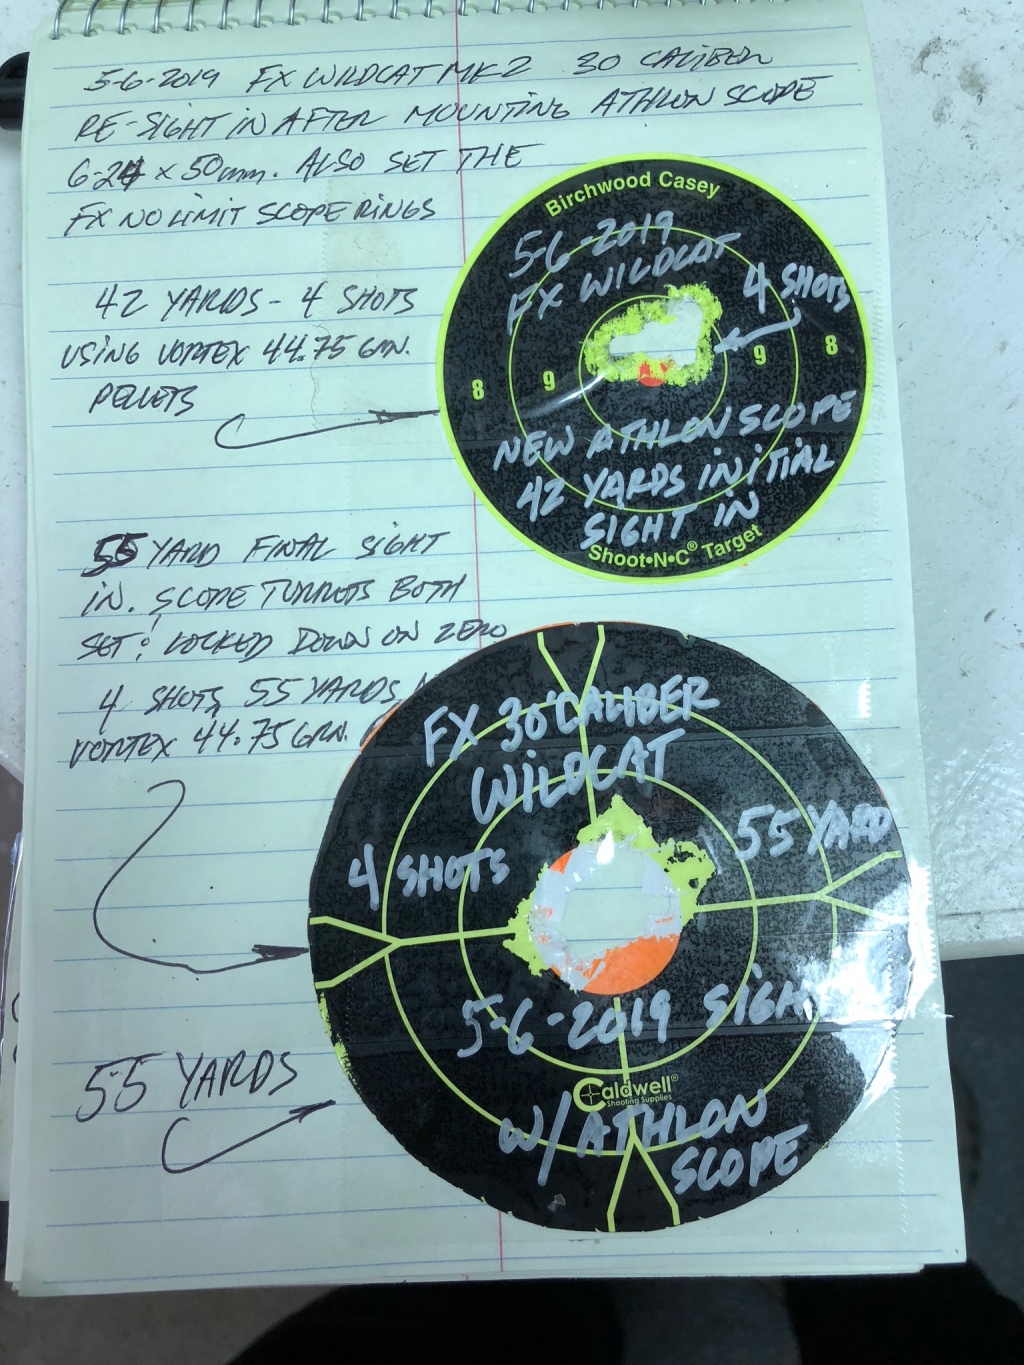 5-6-2019 FX WILDCAT MK2 30 CALIBER
RE-SIGHT IN AFTER MOUNTING ATHLON SCOPE
6-24 x 50mm. ALSO SET THE
FX NO LIMIT SCOPE RINGS
Birchwood Casey
5-6-2019
FX WILDCAT
4 SHOTS
8 9 9 8
NEW ATHLON SCOPE
42 YARDS INITIAL
SIGHT IN
Shoot•N•C® Target
42 YARDS - 4 SHOTS
USING VORTEX 44.75 GRN.
PELLETS
55 YARD FINAL SIGHT
IN. SCOPE TURRETS BOTH
SET & LOCKED DOWN ON ZERO
4 SHOTS, 55 YARDS
VORTEX 44.75 GRN.
FX 30 CALIBER
WILDCAT
55 YARD
4 SHOTS
5-6-2019 SIGHT
Caldwell®
Shooting Supplies
W/ATHLON
SCOPE
55 YARDS